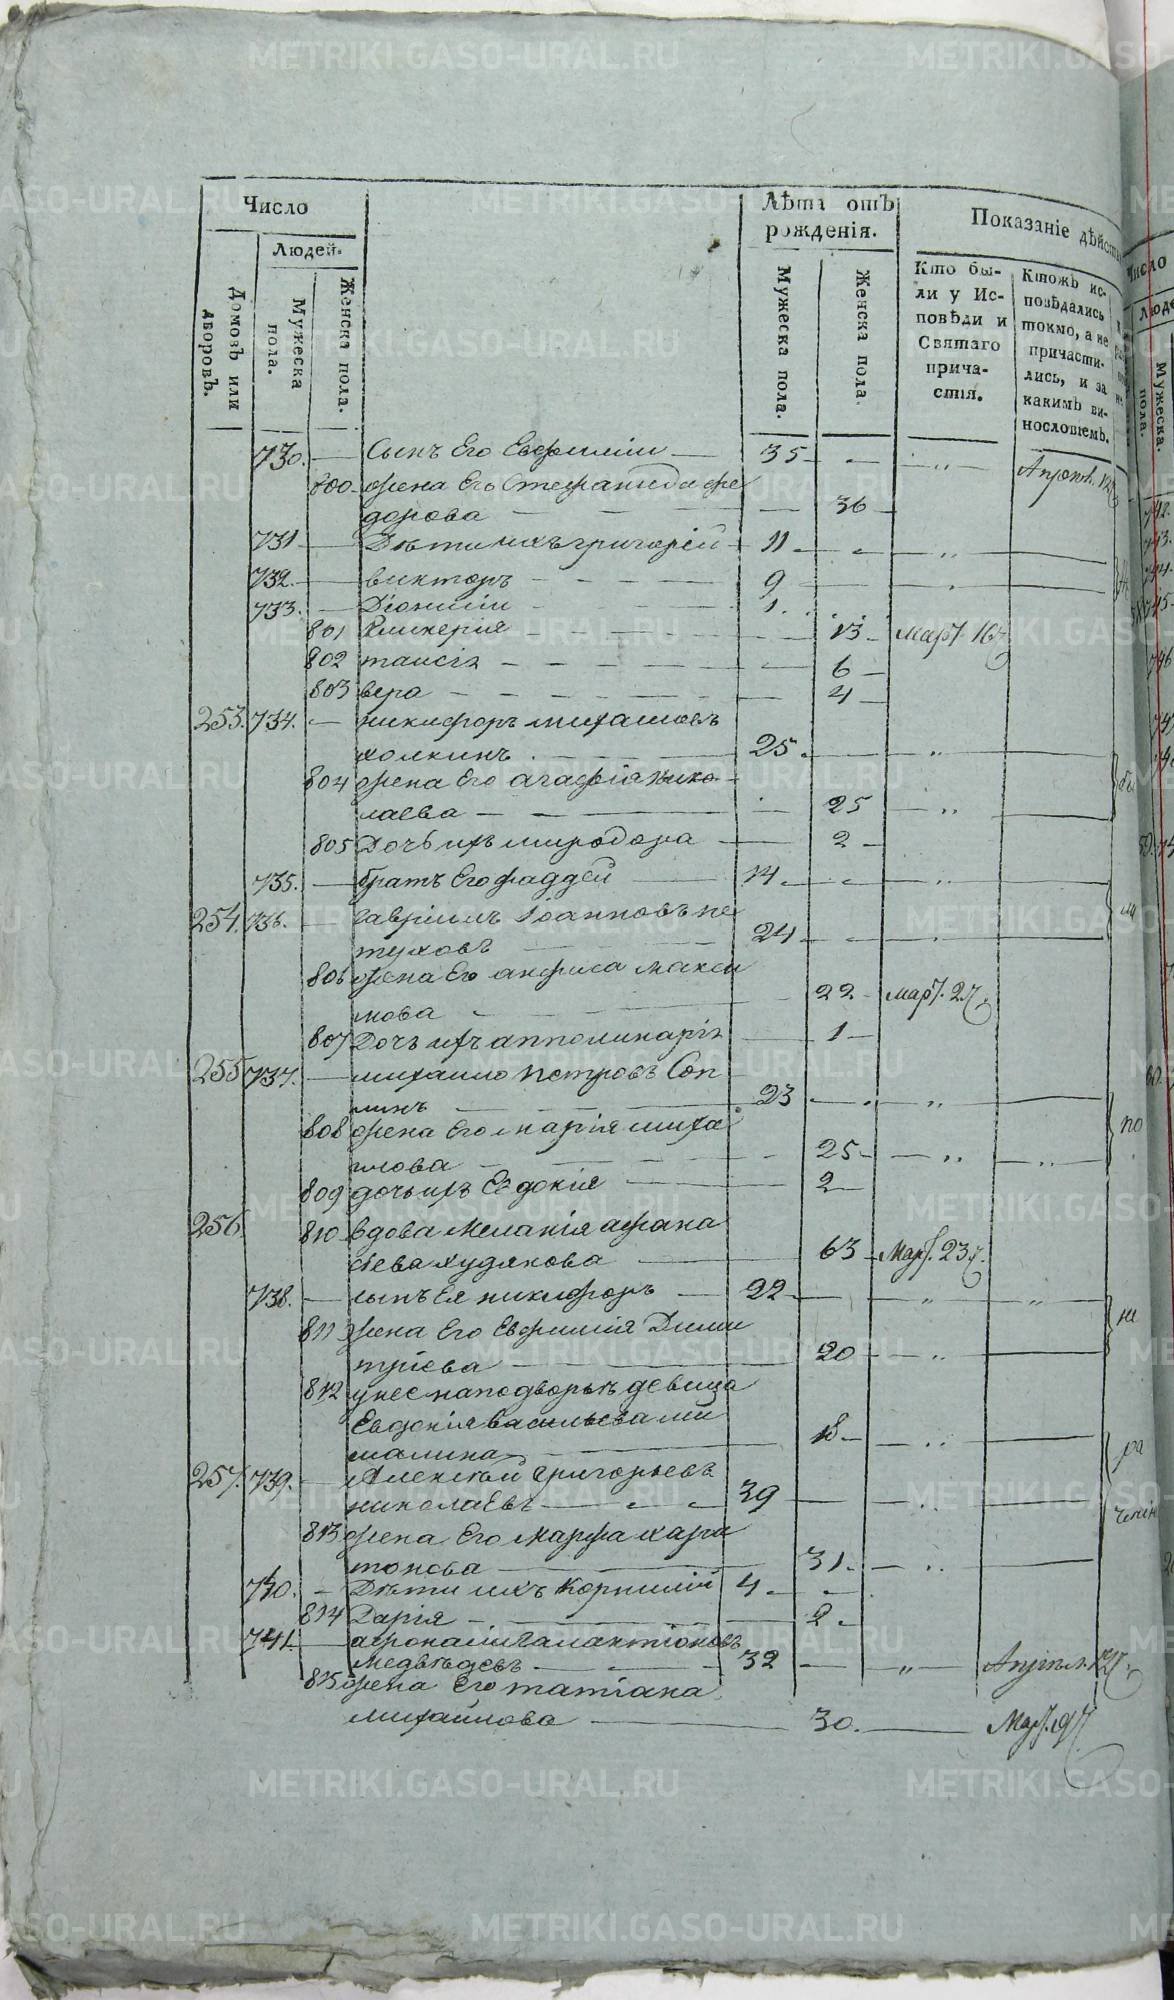 METRIKI.GASO-URAL.RU
Число
Людей.
Домовъ или дворовъ.
Мужеска пола.
Женска пола.
Лѣта отъ рожденія.
Мужеска пола.
Женска пола.
Показаніе дѣйств
Кто бы-
ли у Ис-
повѣди и
Святаго
прича-
стія.
Ктожъ ис-
повѣдались
токмо, а не
причасти-
лись, и за
какимъ ви-
нословіемъ.
730. — Сынъ Его Евфимій — 35 - „ „
800 жена Его Стефанида фе
дорова — 36
731 — Дѣти ихъ григорій 11 - „ „
732. — викторъ - - - 9 — „
733. — Діонисій - - - 1.
801 Гликерія - - - 13 - Март. 16
802 таисія - - - 6 -
803 вера - - - 4 -
253. 734. — никифоръ михаиловъ
холкинъ — 25 - „
804 жена Его агафія Нико
лаева - - - 25 - „
805 Дочь ихъ миродора — 2 -
735. — братъ Его фаддей — 14 - „ „
254. 736. — гавріилъ Іоанновъ пе
туховъ — 24 - „ „
806 жена Его анфиса макси
мова - - - 22 - март. 27.
807 Дочь ихъ апполинарія 1 -
255 737. — михаило Петровъ Соп
линъ — 23 - „
808 жена Его марія миха
илова - - - 25 - „ „
809 дочь ихъ Евдокія — 2 -
256. 810 вдова Меланія афана
сіева худякова — 63 - Март. 23
738. — сынъ Ея никифоръ — 22 - „ „
811 жена Его Евфимія Дими
тріева — 20 - „
812 у нее на подворьѣ девица
Евдокія васильева
18 - „
257. 739. — Алексѣй григорьевъ
николаевъ — 39 - „
813 жена Его марфа хари
тонова — 31. - „
740. — Дѣти ихъ Корнилій 4 - -
814 Дарія — 2 -
741. — афонасій галактіоновъ
медвѣдевъ — 32 — „
815 жена Его татіана
михаилова — 30. — Март.